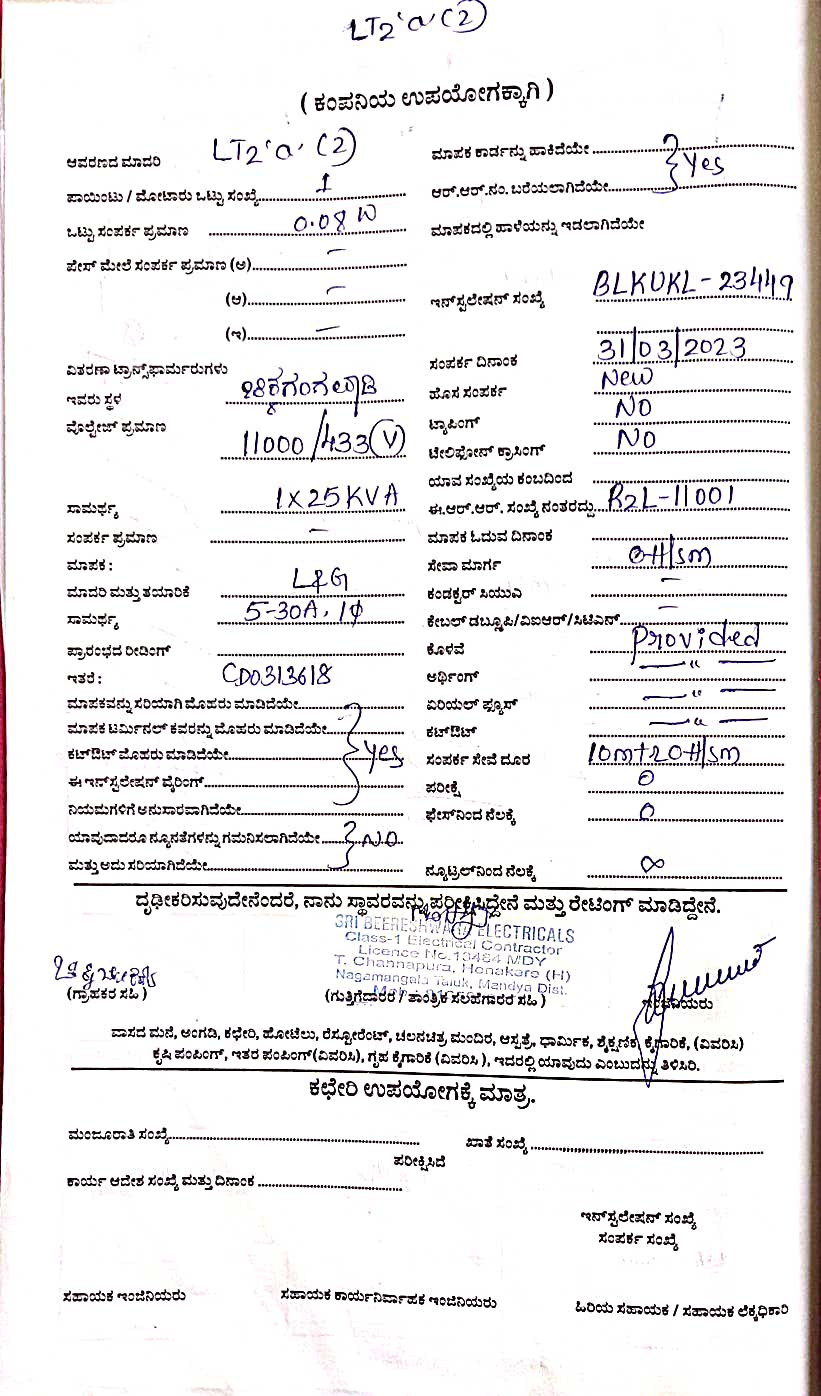 LT2 'a' (2)
( ಕಂಪನಿಯ ಉಪಯೋಗಕ್ಕಾಗಿ )
ಆವರಣದ ಮಾದರಿ LT2 'a' (2)
ಪಾಯಿಂಟು / ಮೋಟಾರು ಒಟ್ಟು ಸಂಖ್ಯೆ 1
ಒಟ್ಟು ಸಂಪರ್ಕ ಪ್ರಮಾಣ 0.08 W
ಪೇಸ್ ಮೇಲೆ ಸಂಪರ್ಕ ಪ್ರಮಾಣ (ಅ) –
(ಆ) –
(ಇ) –
ವಿತರಣಾ ಟ್ರಾನ್ಸ್‌ಫಾರ್ಮರುಗಳು
ಇವರು ಸ್ಥಳ
ವೊಲ್ಟೇಜ್ ಪ್ರಮಾಣ 11000/433 (V)
ಸಾಮರ್ಥ್ಯ 1X25KVA
ಸಂಪರ್ಕ ಪ್ರಮಾಣ –
ಮಾಪಕ :
ಮಾದರಿ ಮತ್ತು ತಯಾರಿಕೆ L&G
ಸಾಮರ್ಥ್ಯ 5-30A, 1ф
ಪ್ರಾರಂಭದ ರೀಡಿಂಗ್
ಇತರೆ : CD0313618
ಮಾಪಕವನ್ನು ಸರಿಯಾಗಿ ಮೊಹರು ಮಾಡಿದೆಯೇ
ಮಾಪಕ ಟರ್ಮಿನಲ್ ಕವರನ್ನು ಮೊಹರು ಮಾಡಿದೆಯೇ
ಕಟ್‌ಔಟ್ ಮೊಹರು ಮಾಡಿದೆಯೇ yes
ಈ ಇನ್‌ಸ್ಟಲೇಷನ್ ವೈರಿಂಗ್
ನಿಯಮಗಳಿಗೆ ಅನುಸಾರವಾಗಿದೆಯೇ
ಯಾವುದಾದರೂ ನ್ಯೂನತೆಗಳನ್ನು ಗಮನಿಸಲಾಗಿದೆಯೇ NO
ಮತ್ತು ಅದು ಸರಿಯಾಗಿದೆಯೇ
ಮಾಪಕ ಕಾರ್ಡನ್ನು ಹಾಕಿದೆಯೇ Yes
ಆರ್.ಆರ್.ನಂ. ಬರೆಯಲಾಗಿದೆಯೇ
ಮಾಪಕದಲ್ಲಿ ಹಾಳೆಯನ್ನು ಇಡಲಾಗಿದೆಯೇ
ಇನ್‌ಸ್ಟಲೇಷನ್ ಸಂಖ್ಯೆ BLKUKL-23449
ಸಂಪರ್ಕ ದಿನಾಂಕ 31/03/2023
ಹೊಸ ಸಂಪರ್ಕ New
ಟ್ಯಾಪಿಂಗ್ NO
ಟೇಲಿಫೋನ್ ಕ್ರಾಸಿಂಗ್ NO
ಯಾವ ಸಂಖ್ಯೆಯ ಕಂಬದಿಂದ
ಈ.ಆರ್.ಆರ್. ಸಂಖ್ಯೆ ನಂತರದ್ದು R2L-11001
ಮಾಪಕ ಓದುವ ದಿನಾಂಕ
ಸೇವಾ ಮಾರ್ಗ OH/SM
ಕಂಡಕ್ಟರ್ ಸಿಯುವಿ –
ಕೇಬಲ್ ಡಬ್ಲ್ಯೂಪಿ/ವಿಐಆರ್/ಸಿಟಿಎಸ್ –
ಕೊಳವೆ Provided
ಅರ್ಥಿಂಗ್ — " —
ಏರಿಯಲ್ ಫ್ಯೂಸ್ — " —
ಕಟ್‌ಔಟ್ — " —
ಸಂಪರ್ಕ ಸೇವೆ ದೂರ 10mt2OH/SM
ಪರೀಕ್ಷೆ 0
ಫೇಸ್‌ನಿಂದ ನೆಲಕ್ಕೆ 0
ನ್ಯೂಟ್ರಲ್‌ನಿಂದ ನೆಲಕ್ಕೆ ∞
ದೃಢೀಕರಿಸುವುದೇನೆಂದರೆ, ನಾನು ಸ್ಥಾವರವನ್ನು ಪರೀಕ್ಷಿಸಿದ್ದೇನೆ ಮತ್ತು ರೇಟಿಂಗ್ ಮಾಡಿದ್ದೇನೆ.
SRI BEERESHWARA ELECTRICALS
Class-1 Electrical Contractor
Licence No.13484 MDY
T. Channapura, Honakere (H)
Nagamangala Taluk, Mandya Dist.
(ಗ್ರಾಹಕರ ಸಹಿ )
(ಗುತ್ತಿಗೆದಾರರ / ತಾಂತ್ರಿಕ ಸಲಹೆಗಾರರ ಸಹಿ )
ವಾಸದ ಮನೆ, ಅಂಗಡಿ, ಕಛೇರಿ, ಹೋಟೆಲು, ರೆಸ್ಟೋರೆಂಟ್, ಚಲನಚಿತ್ರ ಮಂದಿರ, ಆಸ್ಪತ್ರೆ, ಧಾರ್ಮಿಕ, ಶೈಕ್ಷಣಿಕ, ಕೈಗಾರಿಕೆ, (ವಿವರಿಸಿ)
ಕೃಷಿ ಪಂಪಿಂಗ್, ಇತರ ಪಂಪಿಂಗ್(ವಿವರಿಸಿ), ಗೃಹ ಕೈಗಾರಿಕೆ (ವಿವರಿಸಿ ), ಇದರಲ್ಲಿ ಯಾವುದು ಎಂಬುದನ್ನು ತಿಳಿಸಿರಿ.
ಕಛೇರಿ ಉಪಯೋಗಕ್ಕೆ ಮಾತ್ರ.
ಮಂಜೂರಾತಿ ಸಂಖ್ಯೆ ಖಾತೆ ಸಂಖ್ಯೆ
ಪರೀಕ್ಷಿಸಿದೆ
ಕಾರ್ಯ ಆದೇಶ ಸಂಖ್ಯೆ ಮತ್ತು ದಿನಾಂಕ
ಇನ್‌ಸ್ಟಲೇಷನ್ ಸಂಖ್ಯೆ
ಸಂಪರ್ಕ ಸಂಖ್ಯೆ
ಸಹಾಯಕ ಇಂಜಿನಿಯರು ಸಹಾಯಕ ಕಾರ್ಯನಿರ್ವಾಹಕ ಇಂಜಿನಿಯರು ಹಿರಿಯ ಸಹಾಯಕ / ಸಹಾಯಕ ಲೆಕ್ಕಧಿಕಾರಿ